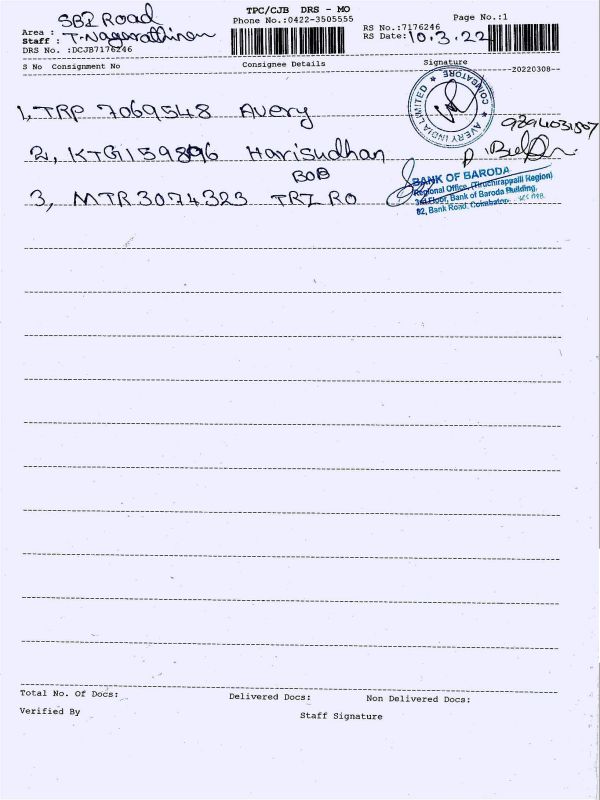 TPC/CJB DRS - MO
Phone No.:0422-3505555
Page No.:1
Area : SBI Road
Staff : T. Nagarathinam
DRS No. :DCJB7176246
RS No.:7176246
RS Date: 10.3.22
S No Consignment No Consignee Details Signature
--20220308--
1, TRP 7069548 Avery
AVERY INDIA LIMITED ★ COIMBATORE ★
2, KTG1159896 Harisudhan
BOB
3, MTR3074323 TRI RO
BANK OF BARODA
Regional Office, (Tiruchirappalli Region)
3rd Floor, Bank of Baroda Building,
82, Bank Road, Coimbatore-
Total No. Of Docs: Delivered Docs: Non Delivered Docs:
Verified By
Staff Signature